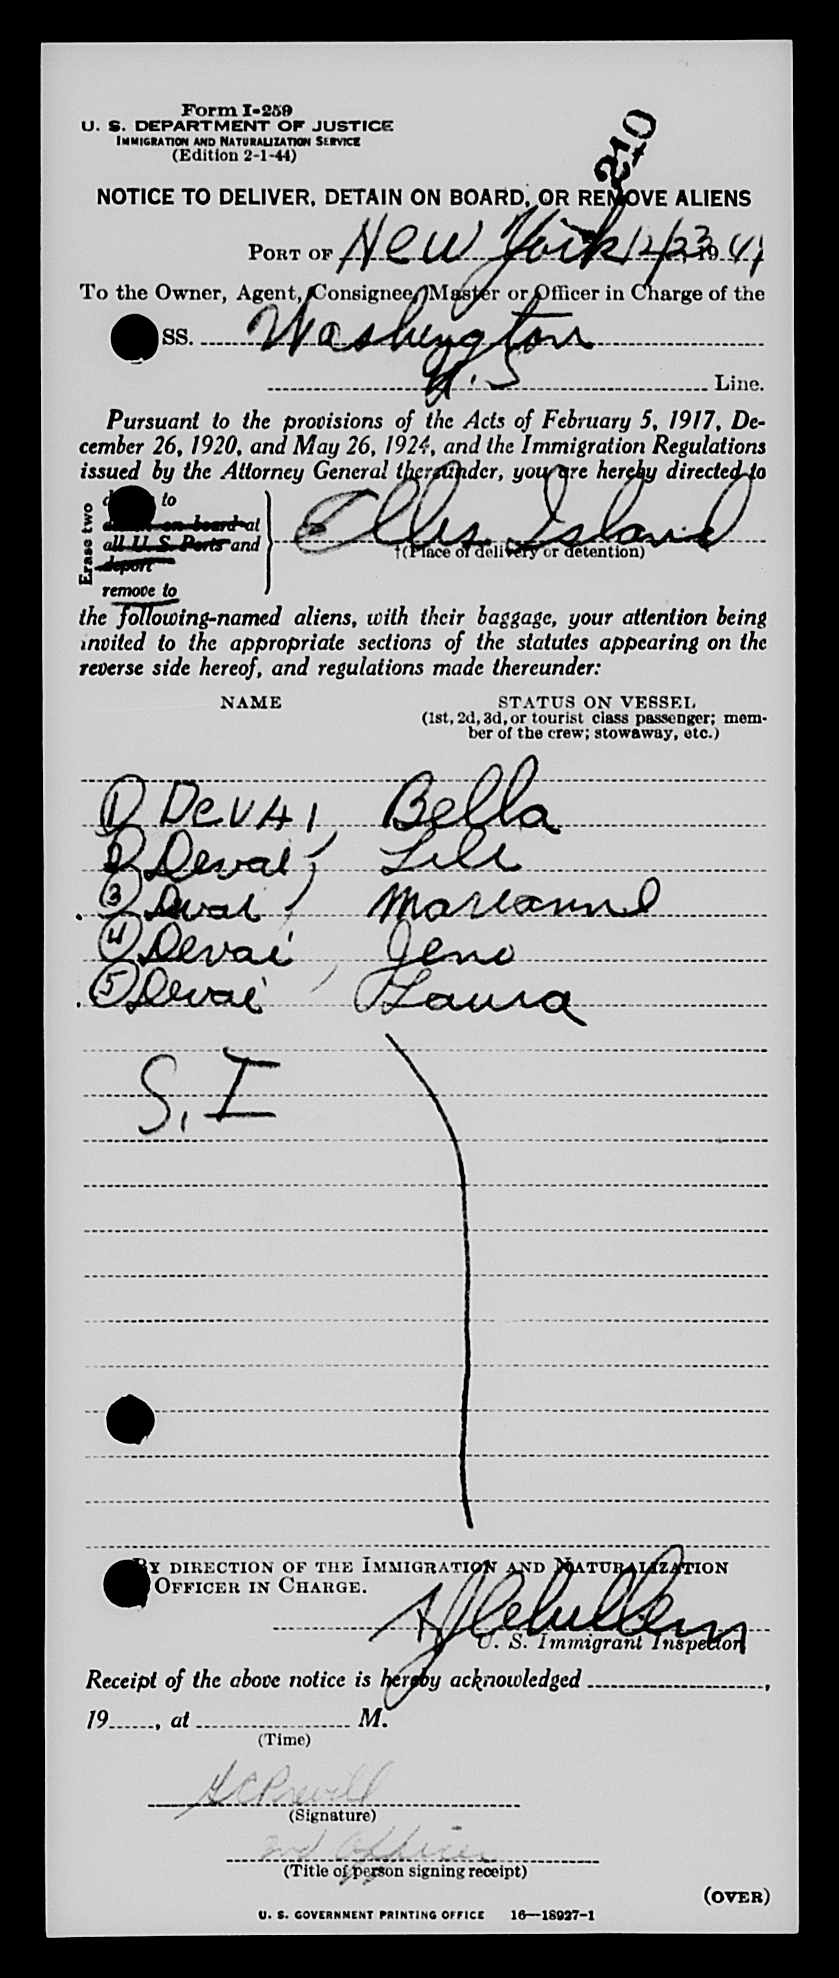 Form I-259
U. S. DEPARTMENT OF JUSTICE
IMMIGRATION AND NATURALIZATION SERVICE
(Edition 2-1-44)
210
NOTICE TO DELIVER, DETAIN ON BOARD, OR REMOVE ALIENS
PORT OF New York 12/23, 19
To the Owner, Agent, Consignee, Master or Officer in Charge of the
SS. Washington
U.S Line.
Pursuant to the provisions of the Acts of February 5, 1917, De-
cember 26, 1920, and May 26, 1924, and the Immigration Regulations
issued by the Attorney General thereunder, you are hereby directed to
Erase two
to
on board at
all U. S. Ports and
deport
remove to
Ellis Island
†(Place of delivery or detention)
the following-named aliens, with their baggage, your attention being
invited to the appropriate sections of the statutes appearing on the
reverse side hereof, and regulations made thereunder:
NAME STATUS ON VESSEL
(1st, 2d, 3d, or tourist class passenger; mem-
ber of the crew; stowaway, etc.)
1 Devai, Bella
2 Devai, Lili
3 Devai, Marianne
4 Devai, Jeno
5 Devai, Laura
S. I
BY DIRECTION OF THE IMMIGRATION AND NATURALIZATION
OFFICER IN CHARGE.
U. S. Immigrant Inspector
Receipt of the above notice is hereby acknowledged ,
19 , at M.
(Time)
(Signature)
2nd Officer
(Title of person signing receipt)
(OVER)
U. S. GOVERNMENT PRINTING OFFICE 16—18927-1